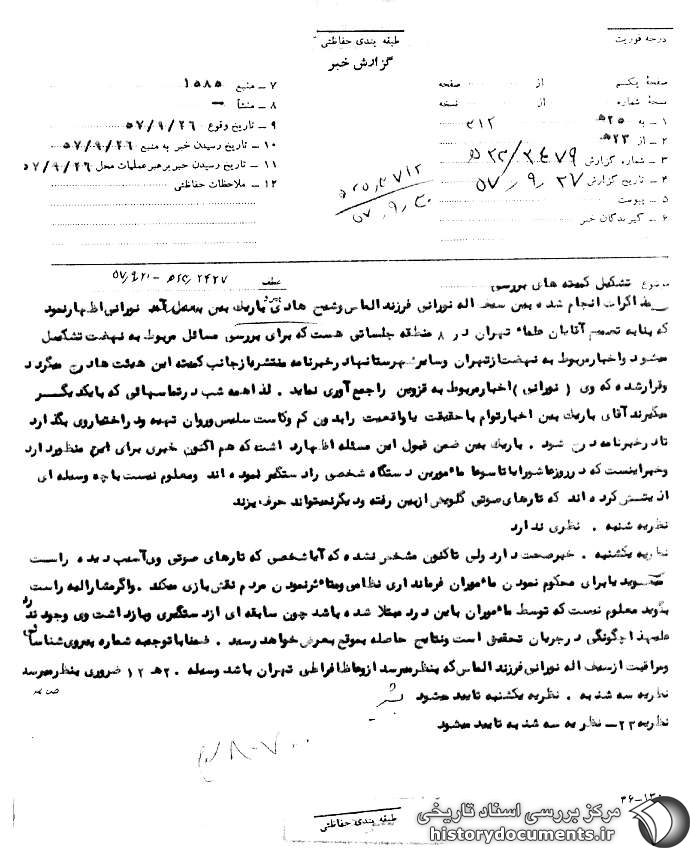 درجه فوریت
طبقه بندی حفاظتی
گزارش خبر
صفحهٔ یکم از صفحه
نسخهٔ شماره از نسخه
۱ – به ۲۵ ﻫ ۳۱۲
۲ – از ۲۳ ﻫ
۳ – شماره گزارش ۲۳/۳۴۷۹ ﻫ
۴ – تاریخ گزارش ۵۷٫۹٫۲۷
۵ – پیوست
۶ – گیرندگان خبر
۷ – منبع ۱۵۸۵
۸ – منشأ —
۹ – تاریخ وقوع ۵۷/۹/۲۶
۱۰ – تاریخ رسیدن خبر به منبع ۵۷/۹/۲۶
۱۱ – تاریخ رسیدن خبر برهبر عملیات محل ۵۷/۹/۲۶
۱۲ – ملاحظات حفاظتی
۵۷٫۹٫۳۰
موضوع تشکیل کمیته های بررسی
عطف
مذاکرات انجام شده بین سیف اله نورانی فرزند الماس وشیخ هادی باریک بین بعمل آمد نورانی اظهارنمود
که بنابه تصمیم آقایان علماء تهران در ۸ منطقه جلساتی هست که برای بررسی مسائل مربوط به نهضت تشکیل
میشود واخبارمربوط به نهضت ازتهران وسایرشهرستانهادرخبرنامه منتشربازجانب کمیته این هیئت هادرج میگردد
وقرارشده که وی ( نورانی ) اخبارمربوط به قزوین راجمع آوری نماید . لذاهمه شب درتماسهائی که بایکدیگر
میگیرند آقای باریک بین اخبارتوام باحقیقت یاواقعیت رابدون کم وکاست سلیس وروان تهیه ودراختیاروی بگذارد
تادرخبرنامه درج شود . باریک بین ضمن قبول این مسئله اظهارد اشت که هم اکنون خبری برای این منظوردارد
وخبراینست که درروزعاشورایاتاسوعا مأمورین دستگاه شخصی رادستگیر نموده اند ومعلوم نیست باچه وسیله ای
اذیتش کرده اند که تارهای صوتی گلویش ازبین رفته ودیگرنمیتواند حرف بزند
نظریه شنبه . نظری ندارد
نظریه یکشنبه . خبرصحت دارد ولی تاکنون مشخص نشده که آیاشخصی که تارهای صوتی وی آسیب دیده راست
میگوید یابرای محکوم نمودن مأموران فرمانداری نظامی ومتأثرنمودن مردم نقش بازی میکند .واگرمشارالیه راست
بگوید معلوم نیست که توسط مأموران باین درد مبتلا شده باشد چون سابقه ای ازدستگیری وبازداشت وی وجود ندارد
علیهذا چگونگی درجریان تحقیق است ونتایج حاصله بموقع بعرض خواهد رسید . ضمنا باتوجه شماره بیروی شناسائی
ومراقبت ازسیف اله نورانی فرزند الماس که بنظرمیرسد ازوعاظ افراطی تهران باشد وسیله ۲۰ ﻫ ۱۲ ضروری بنظرمیرسد
نظریه سه شنبه . نظریه یکشنبه تایید میشود
نظریه ۲۳ – نظریه سه شنبه تایید میشود
۳۶-۱۳
طبقه بندی حفاظتی
مرکز بررسی اسناد تاریخی
historydocuments.ir